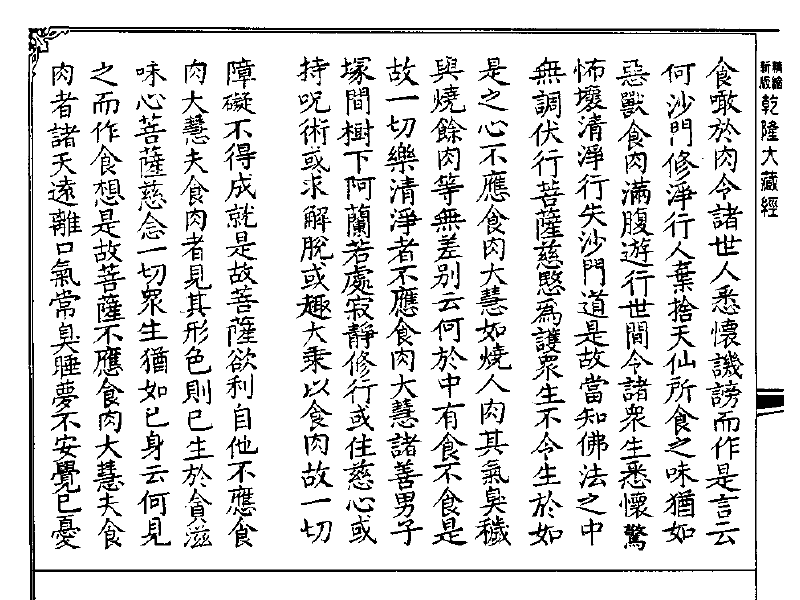 精縮
新版
乾隆大藏經
食噉於肉令諸世人悉懷譏謗而作是言云
何沙門修淨行人棄捨天仙所食之味猶如
惡獸食肉滿腹遊行世間令諸衆生悉懷驚
怖壞清淨行失沙門道是故當知佛法之中
無調伏行菩薩慈愍爲護衆生不令生於如
是之心不應食肉大慧如燒人肉其氣臭穢
與燒餘肉等無差別云何於中有食不食是
故一切樂清淨者不應食肉大慧諸善男子
塚間樹下阿蘭若處寂靜修行或住慈心或
持呪術或求解脫或趣大乘以食肉故一切
障礙不得成就是故菩薩欲利自他不應食
肉大慧夫食肉者見其形色則已生於貪滋
味心菩薩慈念一切衆生猶如已身云何見
之而作食想是故菩薩不應食肉大慧夫食
肉者諸天遠離口氣常臭睡夢不安覺已憂